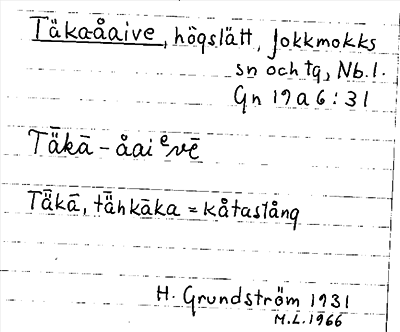 Täkaåaive, högslätt, Jokkmokks
sn och tg, Nb.l.
Gn 19a6:31
Tǟkā - åaiᵉvē
Tǟkā, tǟhkāka = kåtastång
H. Grundström 1931
M.L. 1966